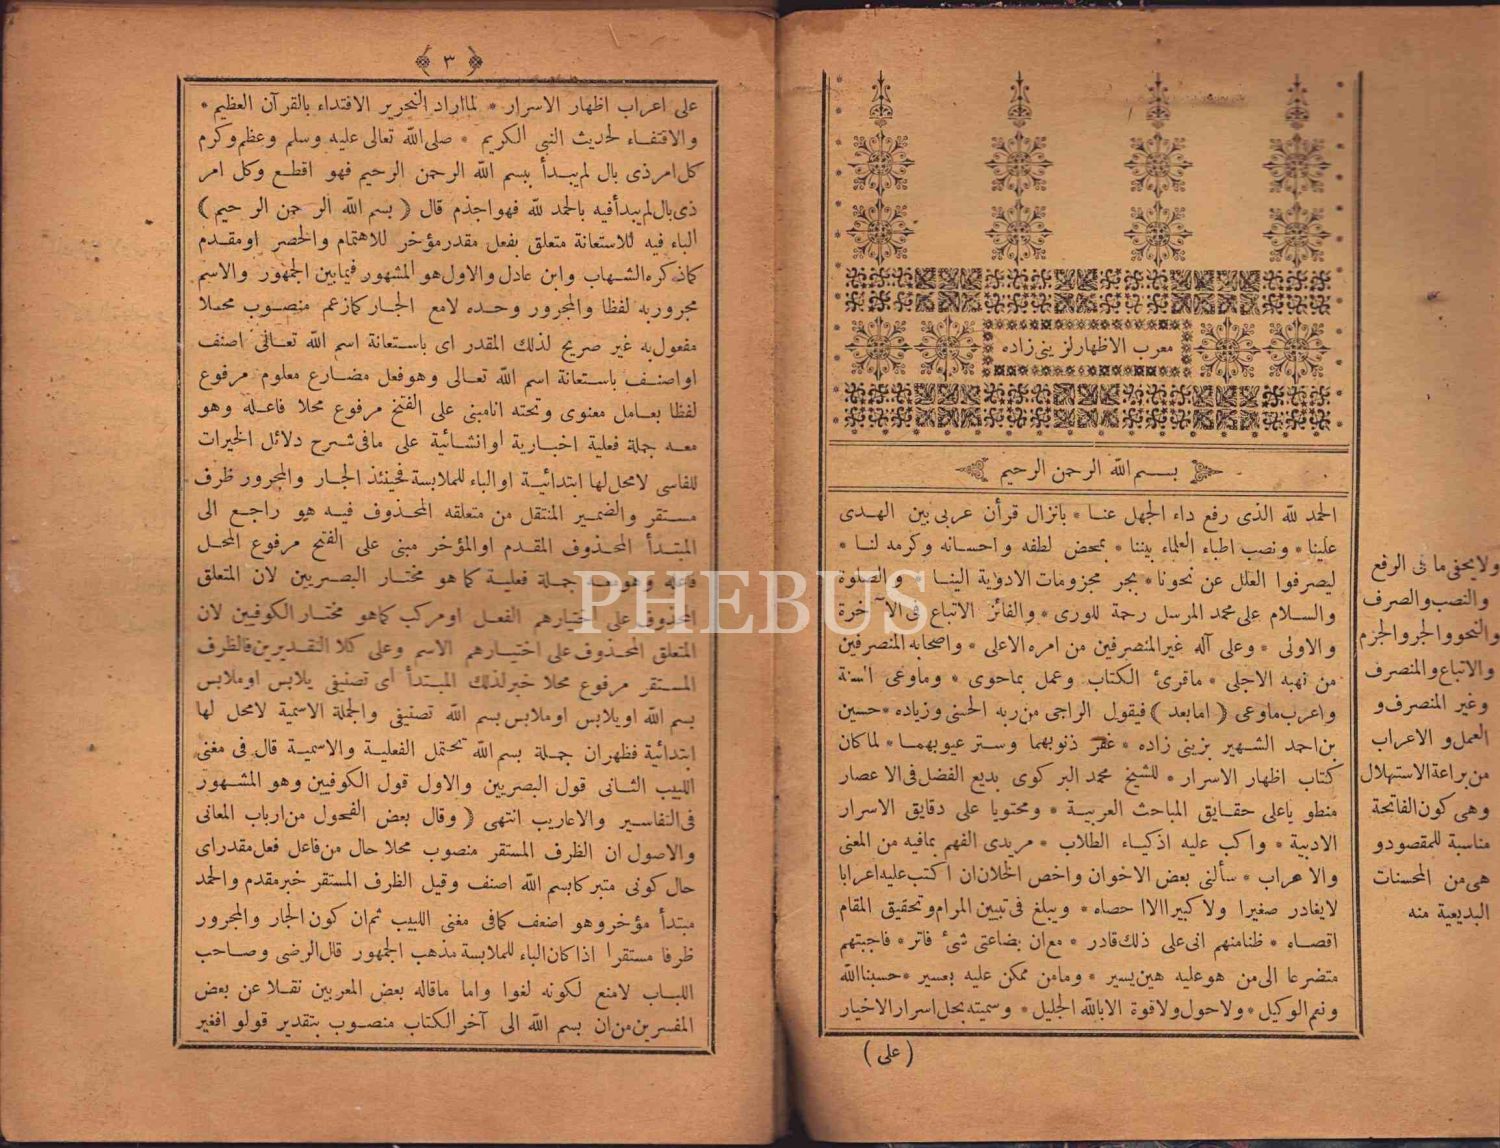 معرب الاظهار لزینی زاده
بسم الله الرحمن الرحیم
الحمد لله الذى رفع داء الجهل عنا * بانزال قرأن عربى بين الهدى
علينا * ونصب اطباء العلماء بيننا * بمحض لطفه واحسانه وكرمه لنا *
ليصرفوا العلل عن نحونا * بجر مجزومات الادوية الينا * والصلوة
والسلام على محمد المرسل رحمة للورى * والفائز الاتباع فى الآخرة
والاولى * وعلى آله غير المنصرفين من امره الاعلى * واصحابه المنصرفين
من نهيه الاجلى * ماقرئ الكتاب وعمل بماحوى * وماوعى السنة
واعرب ماوعى ( امابعد ) فيقول الراجى من ربه الحسنى وزياده * حسين
بن احمد الشهير بزينى زاده * غفر ذنوبهما وستر عيوبهما * لما كان
كتاب اظهار الاسرار * للشيخ محمد البركوى بديع الفضل فى الاعصار
منطويا على حقايق المباحث العربية * ومحتويا على دقايق الاسرار
الادبية * واكب عليه اذكياء الطلاب * مريدى الفهم بمافيه من المعنى
والاعراب * سألنى بعض الاخوان واخص الخلان ان اكتب عليه اعرابا
لايغادر صغيرا ولا كبيرا الا احصاه * ويبلغ فى تبيين المرام وتحقيق المقام
اقصاه * ظنا منهم انى على ذلك قادر * مع ان بضاعتى شئ فاتر * فاجبتهم
متضرعا الى من هو عليه هين يسير * وما من ممكن عليه بعسير * حسبنا الله
ونعم الوكيل * ولاحول ولاقوة الا بالله الجليل * وسميته بحل اسرار الاخيار
( على )
ولا يخفى ما فى الرفع
والنصب والصرف
والنحو والجر والجزم
والاتباع والمنصرف
وغير المنصرف و
العمل و الاعراب
من براعة الاستهلال
وهى كون الفاتحة
مناسبة للمقصود و
هى من المحسنات
البديعية منه
٣
على اعراب اظهار الاسرار * لما اراد النحرير الاقتداء بالقرآن العظيم *
والاقتفاء لحديث النبى الكريم * صلى الله تعالى عليه وسلم وعظم وكرم
كل امر ذى بال لم يبدأ ببسم الله الرحمن الرحيم فهو اقطع وكل امر
ذى بال لم يبدأ فيه بالحمد لله فهو اجذم قال ( بسم الله الرحمن الرحيم )
الباء فيه للاستعانة متعلق بفعل مقدر مؤخر للاهتمام والحصر او مقدم
كما ذكره الشهاب وابن عادل والاول هو المشهور فيما بين الجمهور والاسم
مجرور به لفظا والمجرور وحده لامع الجار كما زعم منصوب محلا
مفعول به غير صريح لذلك المقدر اى باستعانة اسم الله تعالى اصنف
او اصنف باستعانة اسم الله تعالى وهو فعل مضارع معلوم مرفوع
لفظا بعامل معنوى وتحته انا مبنى على الفتح مرفوع محلا فاعله وهو
معه جملة فعلية اخبارية او انشائية على ما فى شرح دلائل الخيرات
للفاسى لامحل لها ابتدائية او الباء للملابسة فحينئذ الجار والمجرور ظرف
مستقر والضمير المنتقل من متعلقه المحذوف فيه هو راجع الى
المبتدأ المحذوف المقدم او المؤخر مبنى على الفتح مرفوع المحل
فاعله وهو معه جملة فعلية كما هو مختار البصريين لان المتعلق
المحذوف على اختيارهم الفعل او مركب كما هو مختار الكوفيين لان
المتعلق المحذوف على اختيارهم الاسم وعلى كلا التقديرين فالظرف
المستقر مرفوع محلا خبر لذلك المبتدأ اى تصنيفى يلابس او ملابس
بسم الله او يلابس او ملابس بسم الله تصنيفى والجملة الاسمية لامحل لها
ابتدائية فظهر ان جملة بسم الله تحتمل الفعلية والاسمية قال فى مغنى
اللبيب الثانى قول البصريين والاول قول الكوفيين وهو المشهور
فى التفاسير والاعاريب انتهى ( وقال بعض الفحول من ارباب المعانى
والاصول ان الظرف المستقر منصوب محلا حال من فاعل فعل مقدر اى
حال كونى متبركا بسم الله اصنف وقيل الظرف المستقر خبر مقدم والحمد
مبتدأ مؤخر وهو اضعف كما فى مغنى اللبيب ثم ان كون الجار والمجرور
ظرفا مستقرا اذا كان الباء للملابسة مذهب الجمهور قال الرضى وصاحب
اللباب لامنع لكونه لغوا واما ماقاله بعض المعربين نقلا عن بعض
المفسرين من ان بسم الله الى آخر الكتاب منصوب بتقدير قولوا فغير
PHEBUS